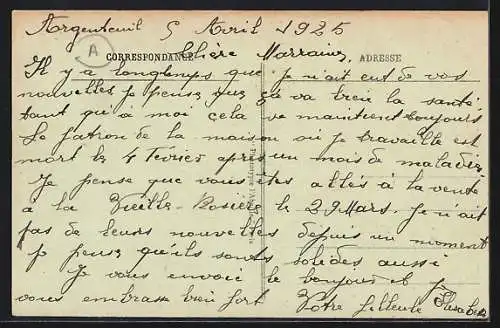 Argenteuil 5 Avril 1925
A
CORRESPONDANCE
ADRESSE
Chère Marraine,
Il y a longtemps que je n'ait eut de vos
nouvelles je pense que ça va bien la santé
tant qu'à moi cela ve maintient toujours
Le patron de la maison où je travaille est
mort le 4 février après un mois de maladie.
Je pense que vous êtes allés à la vente
à la Vieille- le 29 Mars. Je n'ait
pas de leurs nouvelles depuis un moment
je pense qu'ils sont solides aussi
Je vous envoi le bonjour et je
vous embrasse bien fort
Votre filleule